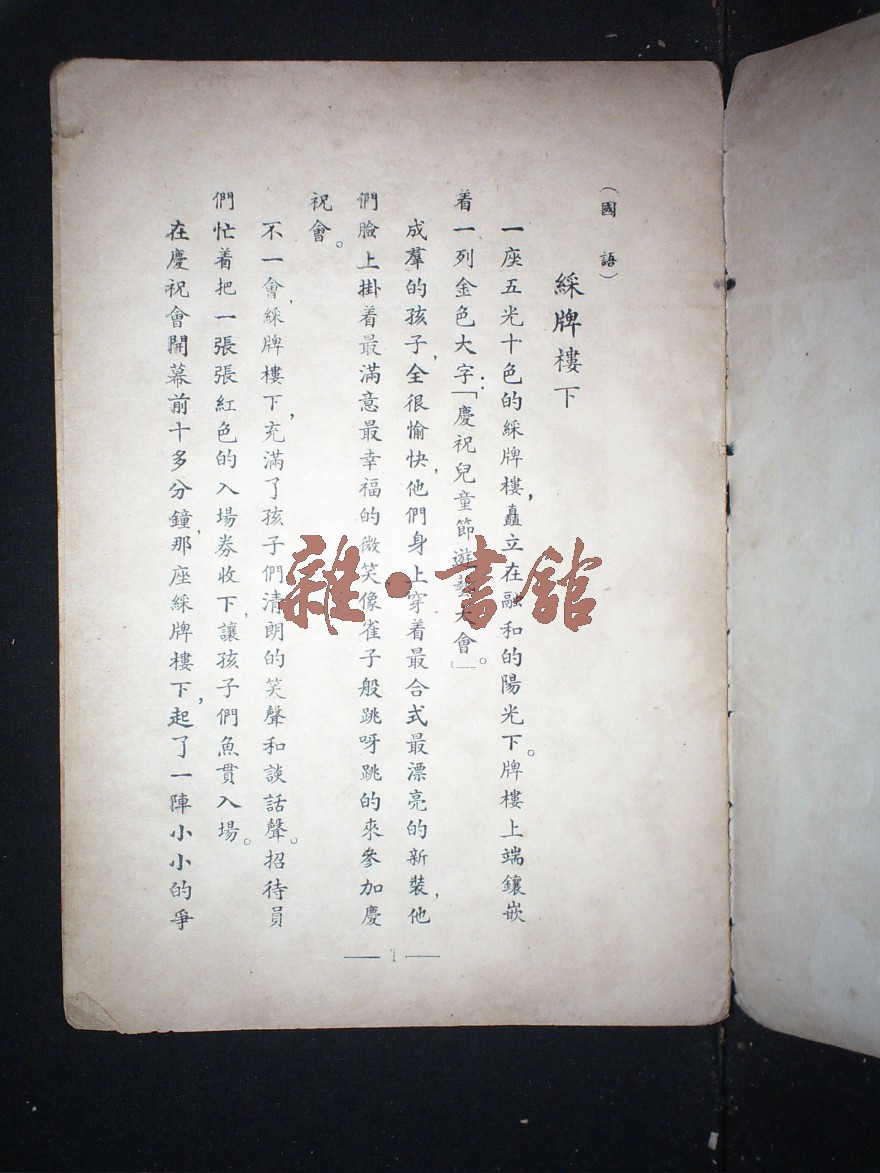 （國語）
綵牌樓下
一座五光十色的綵牌樓，矗立在融和的陽光下。牌樓上端鑲嵌
着一列金色大字：「慶祝兒童節遊藝大會」。
成羣的孩子，全很愉快，他們身上穿着最合式最漂亮的新裝，他
們臉上掛着最滿意最幸福的微笑，像雀子般跳呀跳的來參加慶
祝會。
不一會，綵牌樓下，充滿了孩子們清朗的笑聲和談話聲。招待員
們忙着把一張張紅色的入場券收下，讓孩子們魚貫入場。
在慶祝會開幕前十多分鐘，那座綵牌樓下，起了一陣小小的爭
— 1 —
雜·書舘